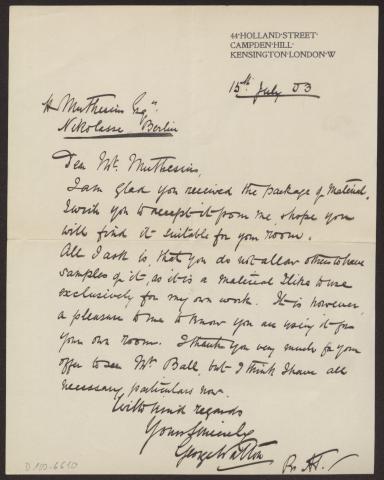 44·HOLLAND·STREET·
CAMPDEN·HILL·
KENSINGTON·LONDON·W
15th July 03
H Muthesius Esqr.
Nikolasse Berlin
Dear Mr. Muthesius,
I am glad you received the package of material.
I wish you to accept it from me, & hope you
will find it suitable for your room.
All I ask is, that you do not allow others to have
samples of it, as it is a material I like to use
exclusively for my own work. It is however
a pleasure to me to know you are using it for
your own room. I thank you very much for your
offer to see Mr Ball, but I think I have all
necessary particulars now.
With kind regards
Yours Sincerely
George Walton
D 110-6610